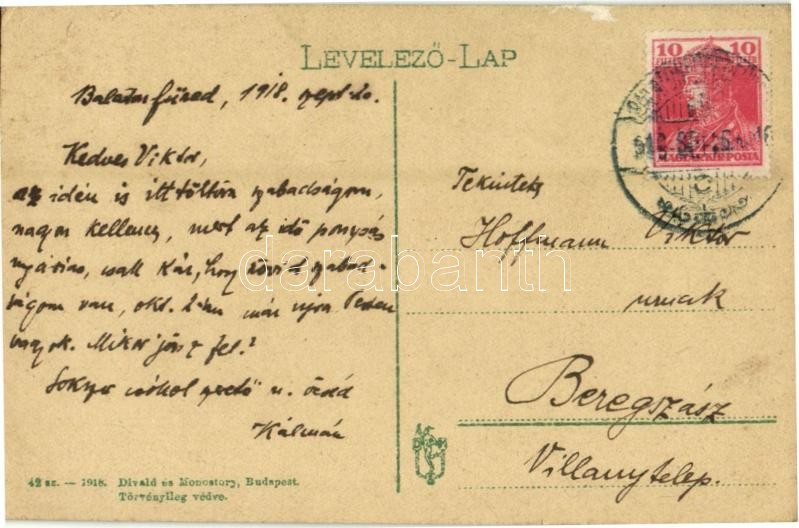 LEVELEZŐ-LAP
Balatonfüred, 1918. szept. 20.
Kedves Viktor,
az idén is itt töltöm szabadságom,
nagyon kellemes, mert az idő pompás
nyárias, csak kár, hogy rövid szabad-
ságom van, okt. 2-án már újra Pesten
vagyok. Mikor jössz fel?
Sokszor csókol szerető u. öcséd
Kálmán
10 10
MAGYAR KIR. POSTA
Tekintetes
Hoffmann Viktor
urnak
Beregszász
Villanytelep.
darabanth
42 sz. — 1918. Divald és Monostory, Budapest.
Törvényileg védve.